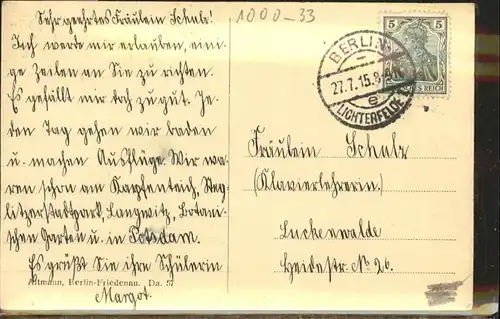 1000-33
Sehr geehrtes Fräulein Schulz!
Ich werde mir erlauben, eini-
ge Zeilen an Sie zu richten.
Es gefällt mir doch zu gut. Je-
den Tag gehen wir baden
u. machen Ausflüge. Wir wa-
ren schon am Karpfenteich, Steg-
litzerstadtpark, Langwitz, Botani-
schen Garten u. in Potsdam.
Es grüßt Sie ihre Schülerin
Margot.
Altmann, Berlin-Friedenau. Da. 57
5 5
DEUTSCHES REICH
BERLIN
27.7.15.8-9
LICHTERFELDE
e
Fräulein Schulz
(Klavierlehrerin.)
Luckenwalde
Heidestr. No 26.